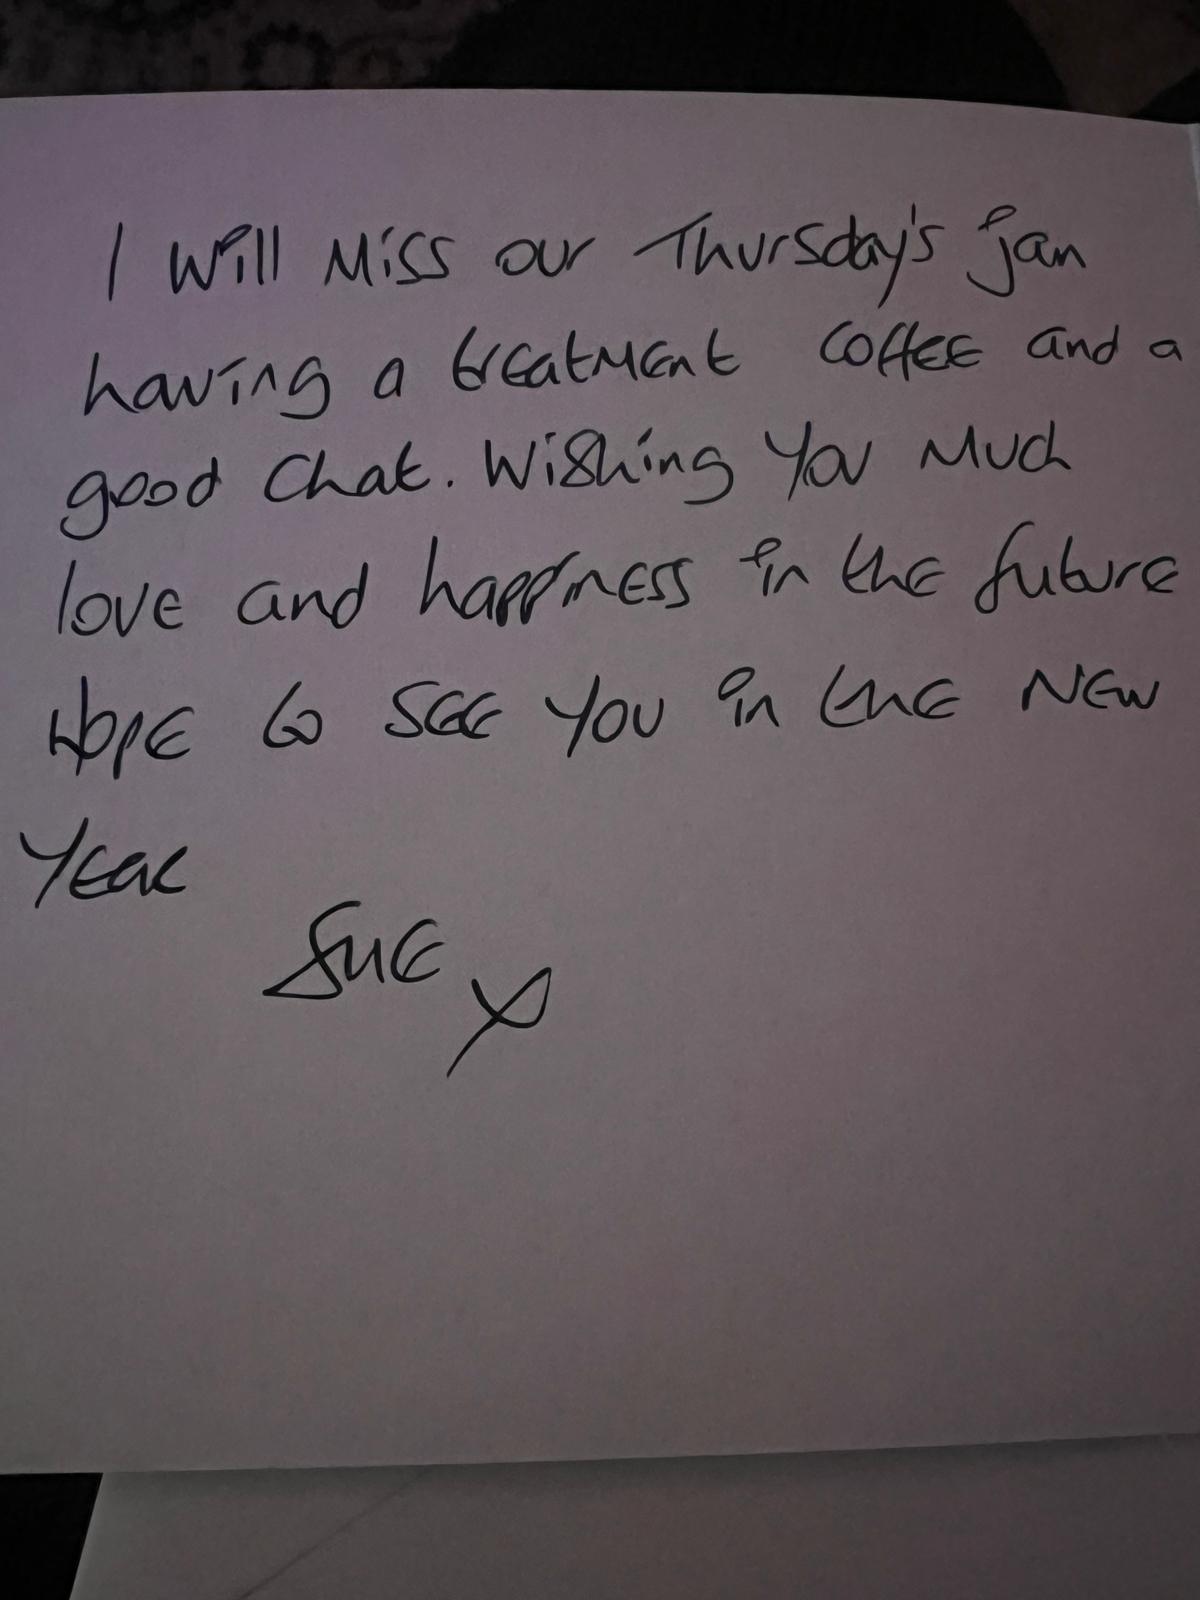 I will miss our Thursday's Jan
having a treatment coffee and a
good chat. Wishing you much
love and happiness in the future
Hope to see you in the New
Year
Sue x